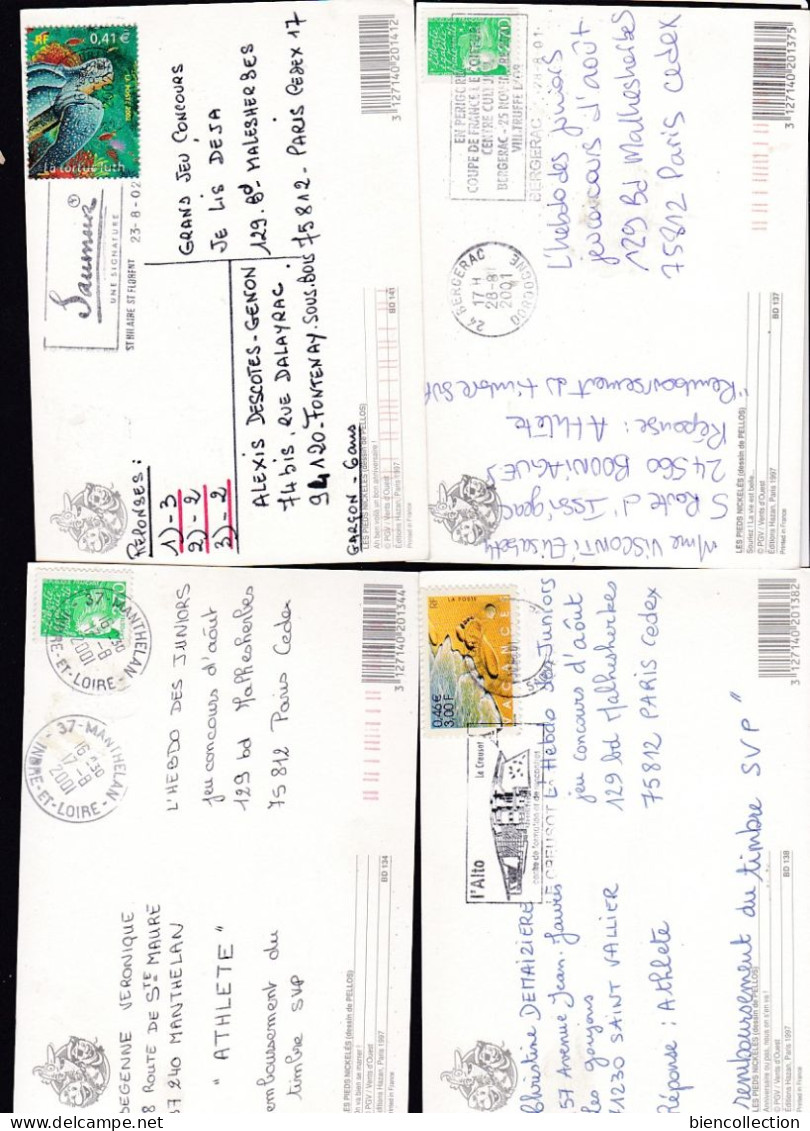 RF 0,41€
La tortue luth
Saumur
UNE SIGNATURE
ST HILAIRE ST FLORENT 23-8-02
GRAND JEU CONCOURS
JE LIS DEJA
129. Bd MALESHERBES
75812 - PARIS CEDEX 17
REPONSES :
1) - 3
2) - 2
3) - 2
ALEXIS DESCOTES-GENON
74 bis, RUE DALAYRAC
94120-FONTENAY.SOUS.BOIS
GARÇON - 6 ans
LES PIEDS NICKELÉS (dessin de PELLOS)
Ah ben voilà un bon anniversaire !
© PGV / Vents d'Ouest
Editions Hazan, Paris 1997
Printed in France
BD 141
3 127140 201412
EN PERIGORD
COUPE DE FRANCE
BERGERAC - 25
BERGERAC 28-8-01
24 BERGERAC
17 H
28-8
2001
DORDOGNE
L'hebdo des juniors
jeu concours d'août
129 Bd Malhesherbes
75812 Paris cedex
Mme VISCONTI Elisabeth
5 Route d'Issigeac
24560 BOUNIAGUES
Réponse : Athlète
Remboursement du timbre SVP
LES PIEDS NICKELÉS (dessin de PELLOS)
Souriez ! La vie est belle...
© PGV / Vents d'Ouest
Editions Hazan, Paris 1997
Printed in France
BD 137
3 127140 201375
37-MANTHELAN
INDRE-ET-LOIRE
37-MANTHELAN
16 H 30
17-8
2001
INDRE-ET-LOIRE
L'HEBDO DES JUNIORS
jeu concours d'août
129 bd Malhesherbes
75 812 Paris Cedex
DEGENNE VERONIQUE
8 ROUTE DE STE MAURE
37 240 MANTHELAN
" ATHLETE "
emboursement du
timbre SVP
LES PIEDS NICKELÉS (dessin de PELLOS)
On va bien se marrer !
© PGV / Vents d'Ouest
Editions Hazan, Paris 1997
Printed in France
BD 134
3 127140 201344
RF LA POSTE
0,46€
3,00 F
VACANCES
Le Creusot
l'Alto
centre de formation et de rencontres
LE CREUSOT
L'Hebdo des Juniors
jeu concours d'août
129 bd Malhesherbes
75812 PARIS Cedex
Christine DEMAIZIERE
57 Avenue Jean-Jaures
les goujons
71230 SAINT VALLIER
Réponse : Athlete
remboursement du timbre SVP"
LES PIEDS NICKELÉS (dessin de PELLOS)
Anniversaire ou pas, nous on s'en va !
© PGV / Vents d'Ouest
Editions Hazan, Paris 1997
Printed in France
BD 138
3 127140 201382
biencollection